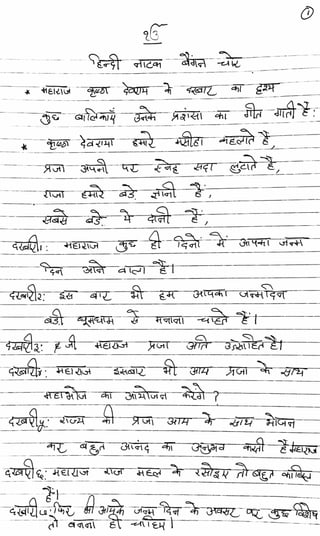 १
ੴ
हिन्दी नाटक बैंगन चोर
* महाराज कृष्णा देवराय के दरबार का दृश्य
कुछ बालिकाएँ उनके प्रशंसा का गीत गाती हैं:
* कृष्णा देवराया हमारे मसीहा कहलाते हैं,
प्रजा अपनी पर स्नेह सदा लुटाते हैं,
राजा हमारे बड़े ज्ञानी हैं,
सबसे बड़े ये दानी हैं,
दरबारी1: महाराज कुछ ही दिनों में आपका जन्म
दिन आने वाला है।
दरबारी2: इस बार भी हम आपका जन्मदिन
बड़ी धूमधाम से मनाना चाहते हैं।
दरबारी3: जी महाराज प्रजा अति उत्साहित है।
दरबारी4: महाराज इसबार भी आप प्रजा के साथ
महाभोज का आयोजन करेंगे?
दरबारी5: राज्य की प्रजा आप के साथ भोजन
कर बहुत आनंद का अनुभव करती है महाराज
दरबारी6: महाराज राज महल के रसोइए तो बहुत काबिल
हैं।
दरबारी7: फिर भी आपके जन्म दिन के अवसर पर कुछ विशेष
तो बनना ही चाहिए।